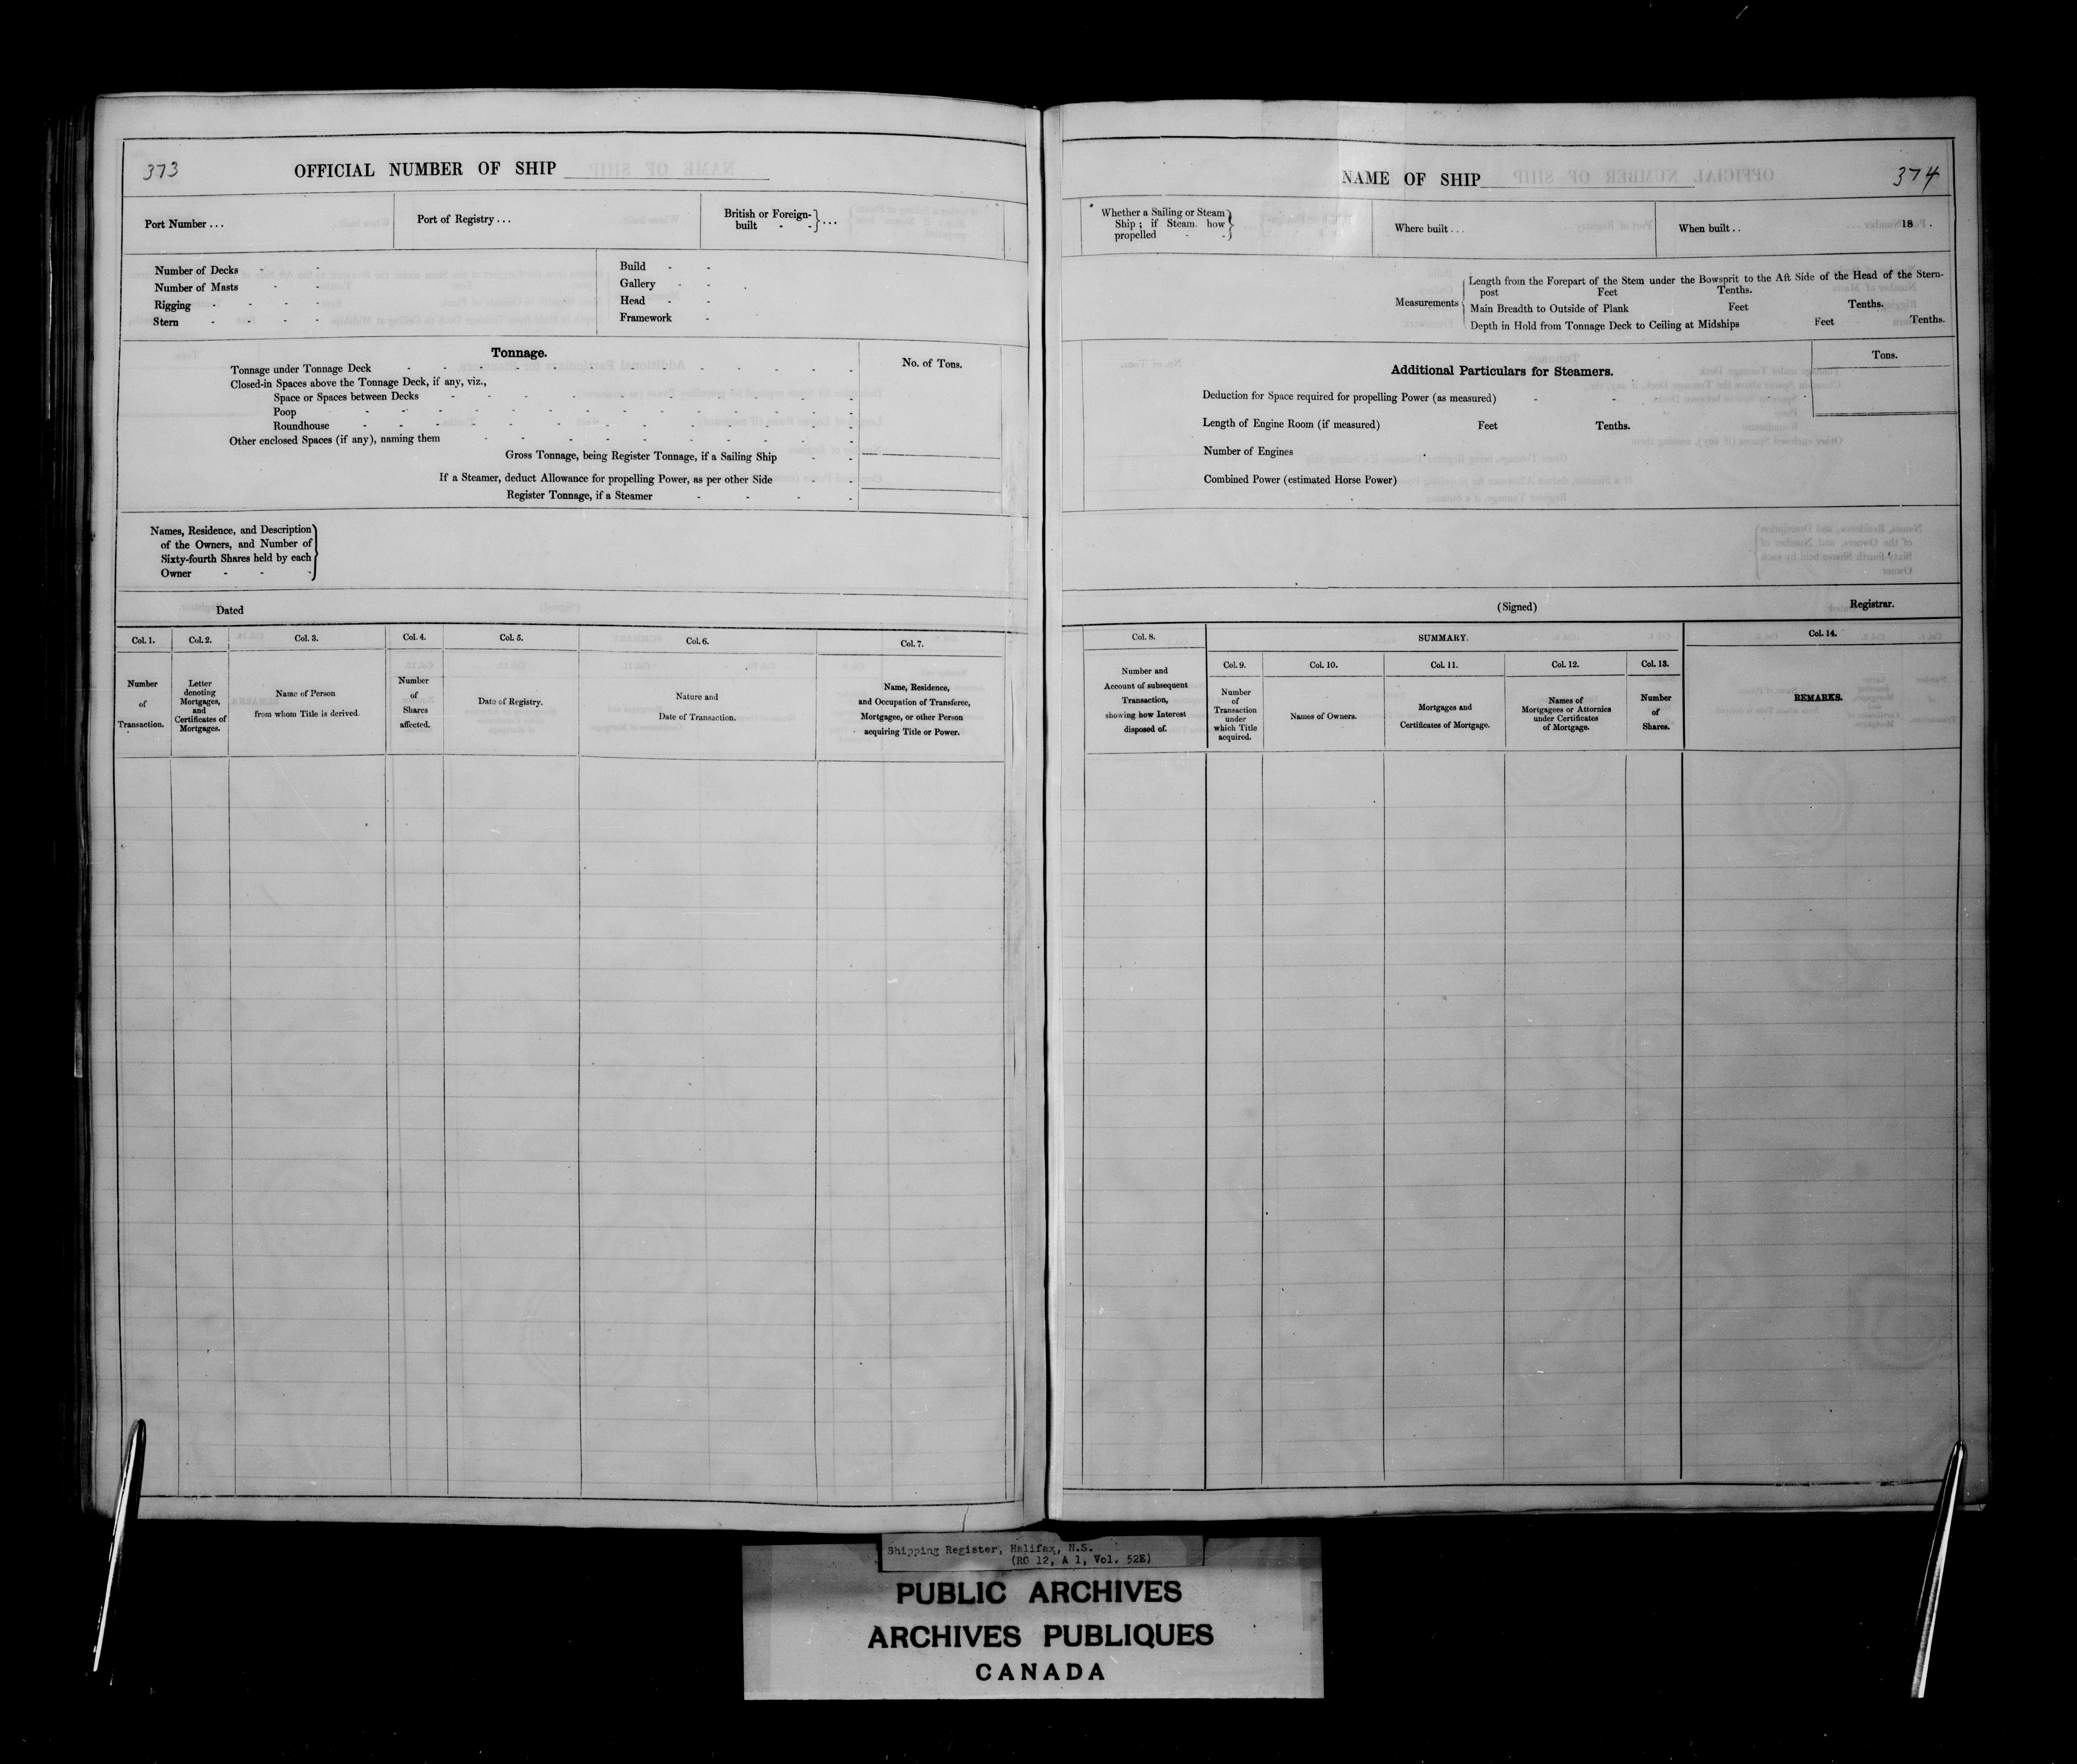 373
OFFICIAL NUMBER OF SHIP
Port Number ...
Port of Registry ...
British or Foreign-
built - - } ...
Number of Decks - -
Number of Masts - -
Rigging - - - -
Stern - - - -
Build - -
Gallery - -
Head - -
Framework -
Tonnage.
No. of Tons.
Tonnage under Tonnage Deck
Closed-in Spaces above the Tonnage Deck, if any, viz.,
Space or Spaces between Decks
Poop
Roundhouse
Other enclosed Spaces (if any), naming them
Gross Tonnage, being Register Tonnage, if a Sailing Ship
If a Steamer, deduct Allowance for propelling Power, as per other Side
Register Tonnage, if a Steamer
Names, Residence, and Description
of the Owners, and Number of
Sixty-fourth Shares held by each
Owner - - -
Dated
Col. 1.
Number
of
Transaction.
Col. 2.
Letter
denoting
Mortgages,
and
Certificates of
Mortgages.
Col. 3.
Name of Person
from whom Title is derived.
Col. 4.
Number
of
Shares
affected.
Col. 5.
Date of Registry.
Col. 6.
Nature and
Date of Transaction.
Col. 7.
Name, Residence,
and Occupation of Transferee,
Mortgagee, or other Person
acquiring Title or Power.
NAME OF SHIP
374
Whether a Sailing or Steam
Ship; if Steam how
propelled - -
Where built ...
When built .. 18 .
Measurements
Length from the Forepart of the Stem under the Bowsprit to the Aft Side of the Head of the Stern-
post Feet Tenths.
Main Breadth to Outside of Plank Feet Tenths.
Depth in Hold from Tonnage Deck to Ceiling at Midships Feet Tenths.
Additional Particulars for Steamers.
Tons.
Deduction for Space required for propelling Power (as measured)
Length of Engine Room (if measured) Feet Tenths.
Number of Engines
Combined Power (estimated Horse Power)
(Signed) Registrar.
Col. 8.
Number and
Account of subsequent
Transaction,
showing how Interest
disposed of.
SUMMARY.
Col. 9.
Number
of
Transaction
under
which Title
acquired.
Col. 10.
Names of Owners.
Col. 11.
Mortgages and
Certificates of Mortgage.
Col. 12.
Names of
Mortgagees or Attornies
under Certificates
of Mortgage.
Col. 13.
Number
of
Shares.
Col. 14.
REMARKS.
Shipping Register, Halifax, N.S.
(RG 12, A 1, Vol. 52E)
PUBLIC ARCHIVES
ARCHIVES PUBLIQUES
CANADA